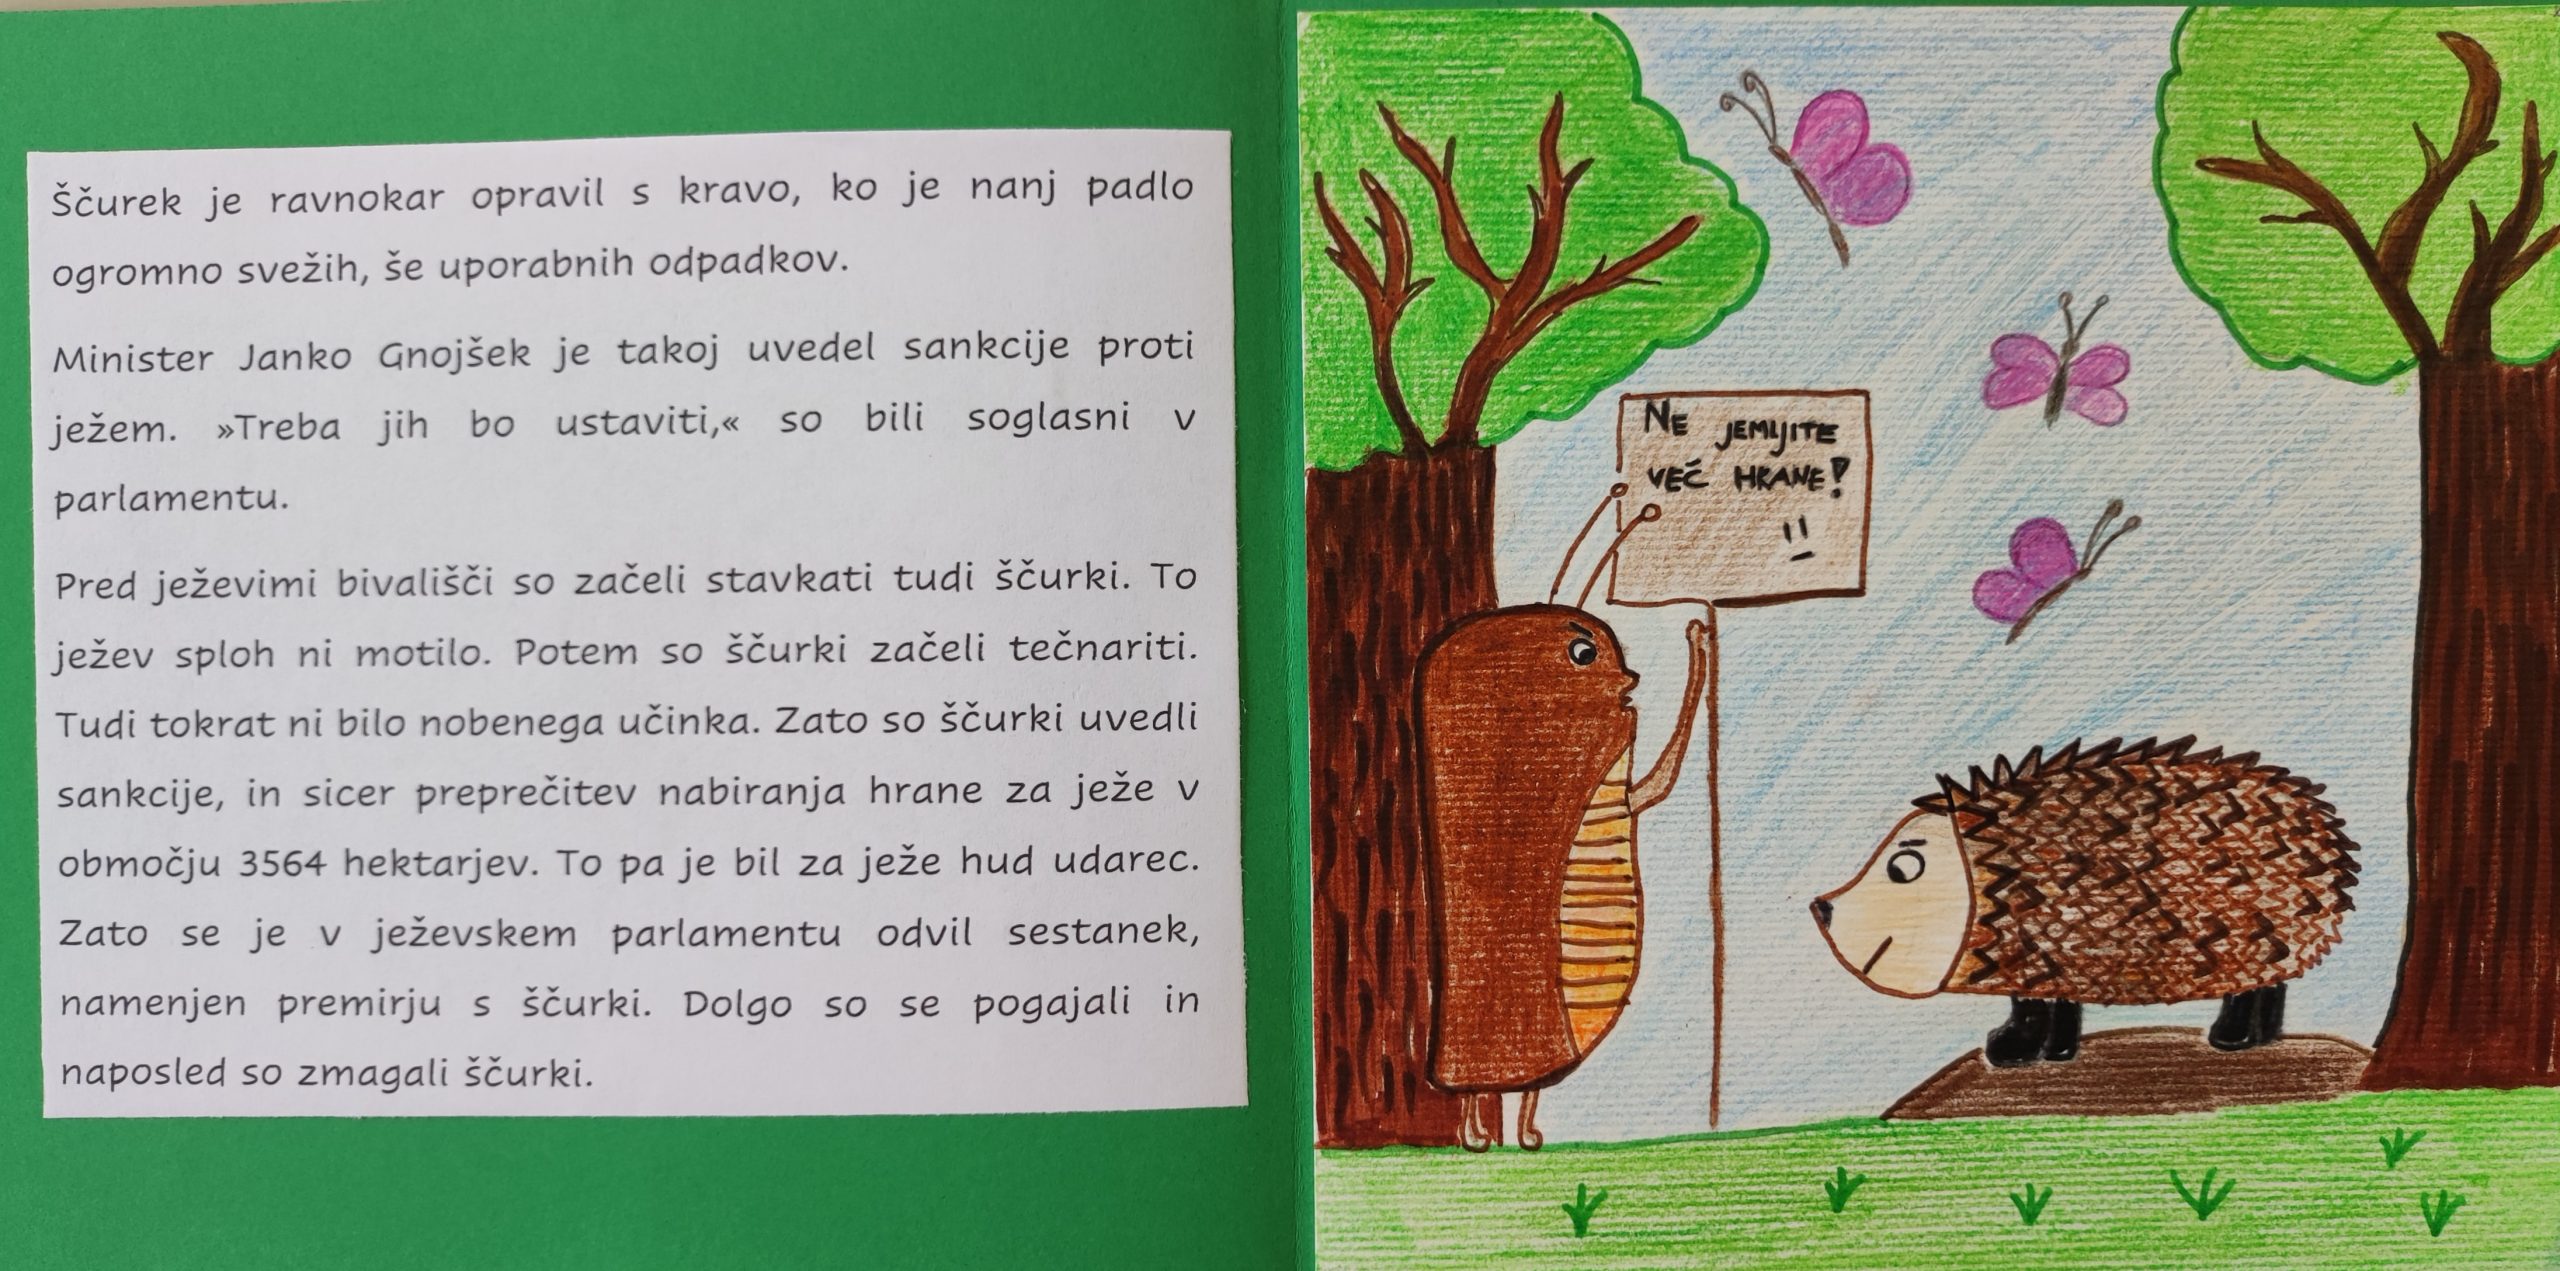 Ščurek je ravnokar opravil s kravo, ko je nanj padlo
ogromno svežih, še uporabnih odpadkov.
Minister Janko Gnojšek je takoj uvedel sankcije proti
ježem. »Treba jih bo ustaviti,« so bili soglasni v
parlamentu.
Pred ježevimi bivališči so začeli stavkati tudi ščurki. To
ježev sploh ni motilo. Potem so ščurki začeli tečnariti.
Tudi tokrat ni bilo nobenega učinka. Zato so ščurki uvedli
sankcije, in sicer preprečitev nabiranja hrane za ježe v
območju 3564 hektarjev. To pa je bil za ježe hud udarec.
Zato se je v ježevskem parlamentu odvil sestanek,
namenjen premirju s ščurki. Dolgo so se pogajali in
naposled so zmagali ščurki.
NE JEMLJITE
VEČ HRANE!